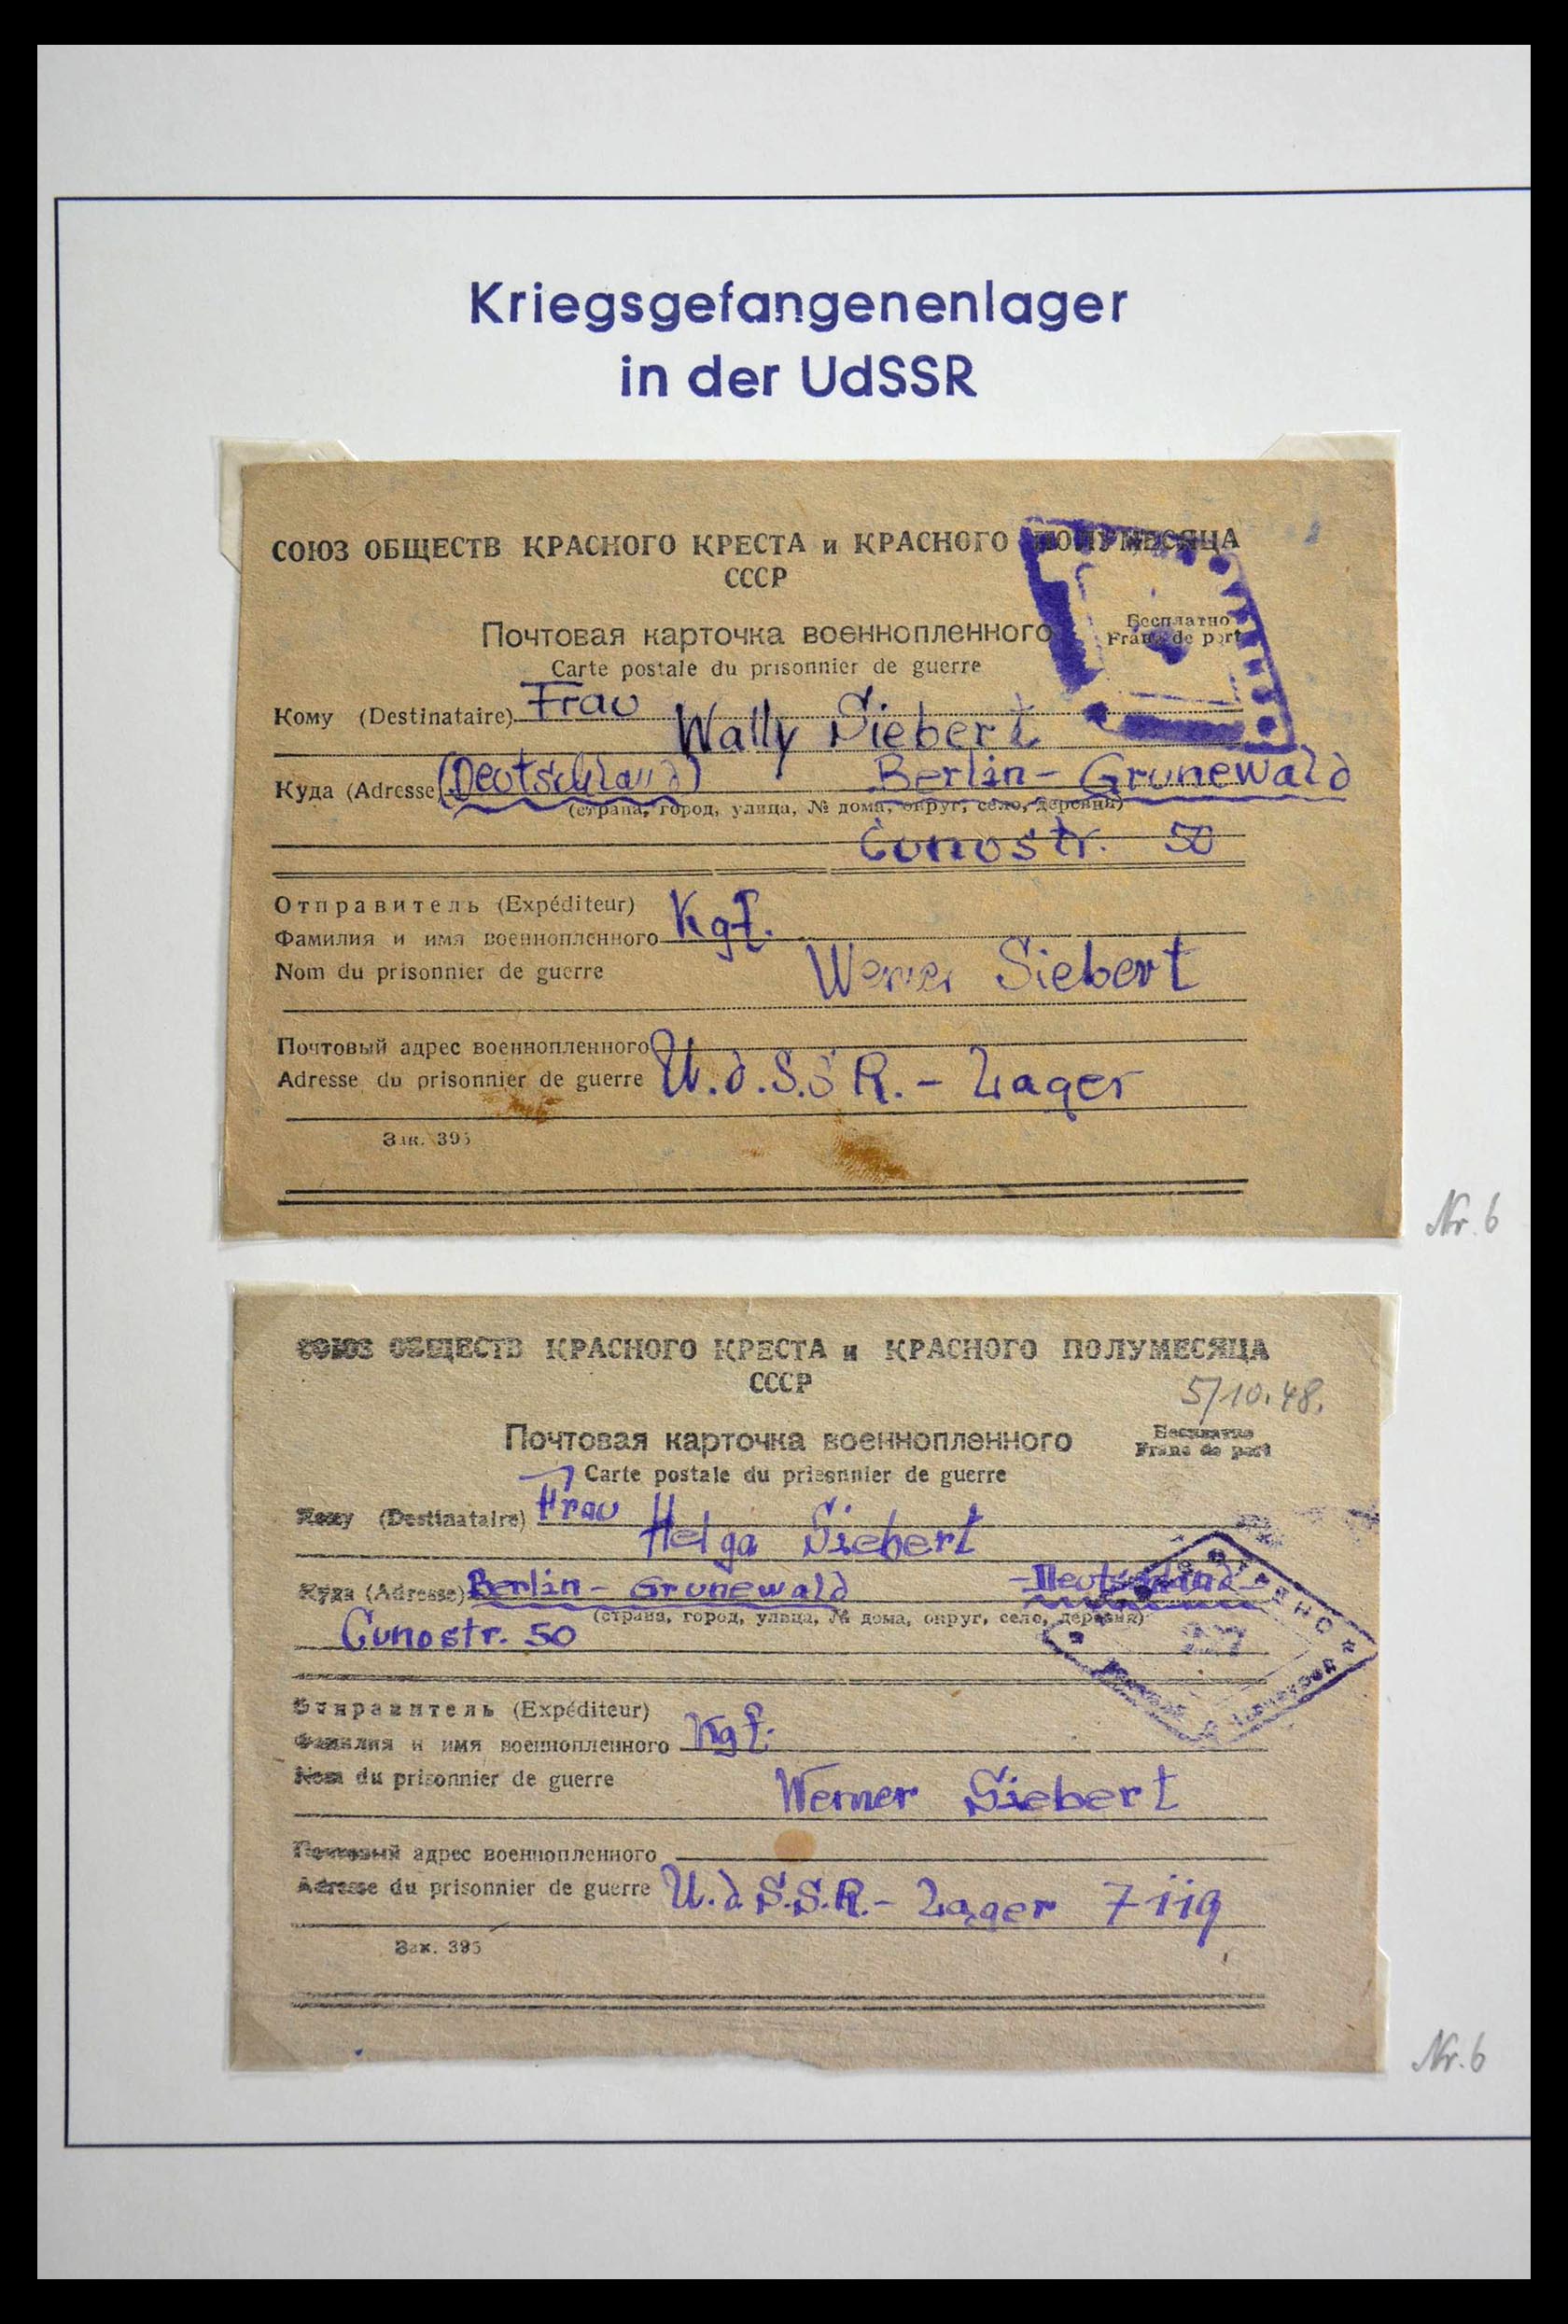 Kriegsgefangenenlager
in der UdSSR
СОЮЗ ОБЩЕСТВ КРАСНОГО КРЕСТА и КРАСНОГО ПОЛУМЕСЯЦА
СССР
Почтовая карточка военнопленного
Бесплатно
Franc de port
Carte postale du prisonnier de guerre
Кому (Destinataire) Frau
Wally Siebert
Куда (Adresse) (Deutschland) Berlin - Grunewald
(страна, город, улица, № дома, округ, село, деревня)
Cunostr. 50
Отправитель (Expéditeur)
Фамилия и имя военнопленного Kgf.
Nom du prisonnier de guerre Werner Siebert
Почтовый адрес военнопленного
Adresse du prisonnier de guerre U.d.S.S.R. - Lager
Зак. 395
Nr. 6
СОЮЗ ОБЩЕСТВ КРАСНОГО КРЕСТА и КРАСНОГО ПОЛУМЕСЯЦА
СССР
5/10.48.
Почтовая карточка военнопленного
Бесплатно
Franc de port
Carte postale du prisonnier de guerre
Кому (Destinataire) Frau
Helga Siebert
Куда (Adresse) Berlin - Grunewald - Deutschland -
(страна, город, улица, № дома, округ, село, деревня)
Cunostr. 50
Отправитель (Expéditeur)
Фамилия и имя военнопленного Kgf.
Nom du prisonnier de guerre Werner Siebert
Почтовый адрес военнопленного
Adresse du prisonnier de guerre U.d.S.S.R. - Lager
Зак. 395
Nr. 6